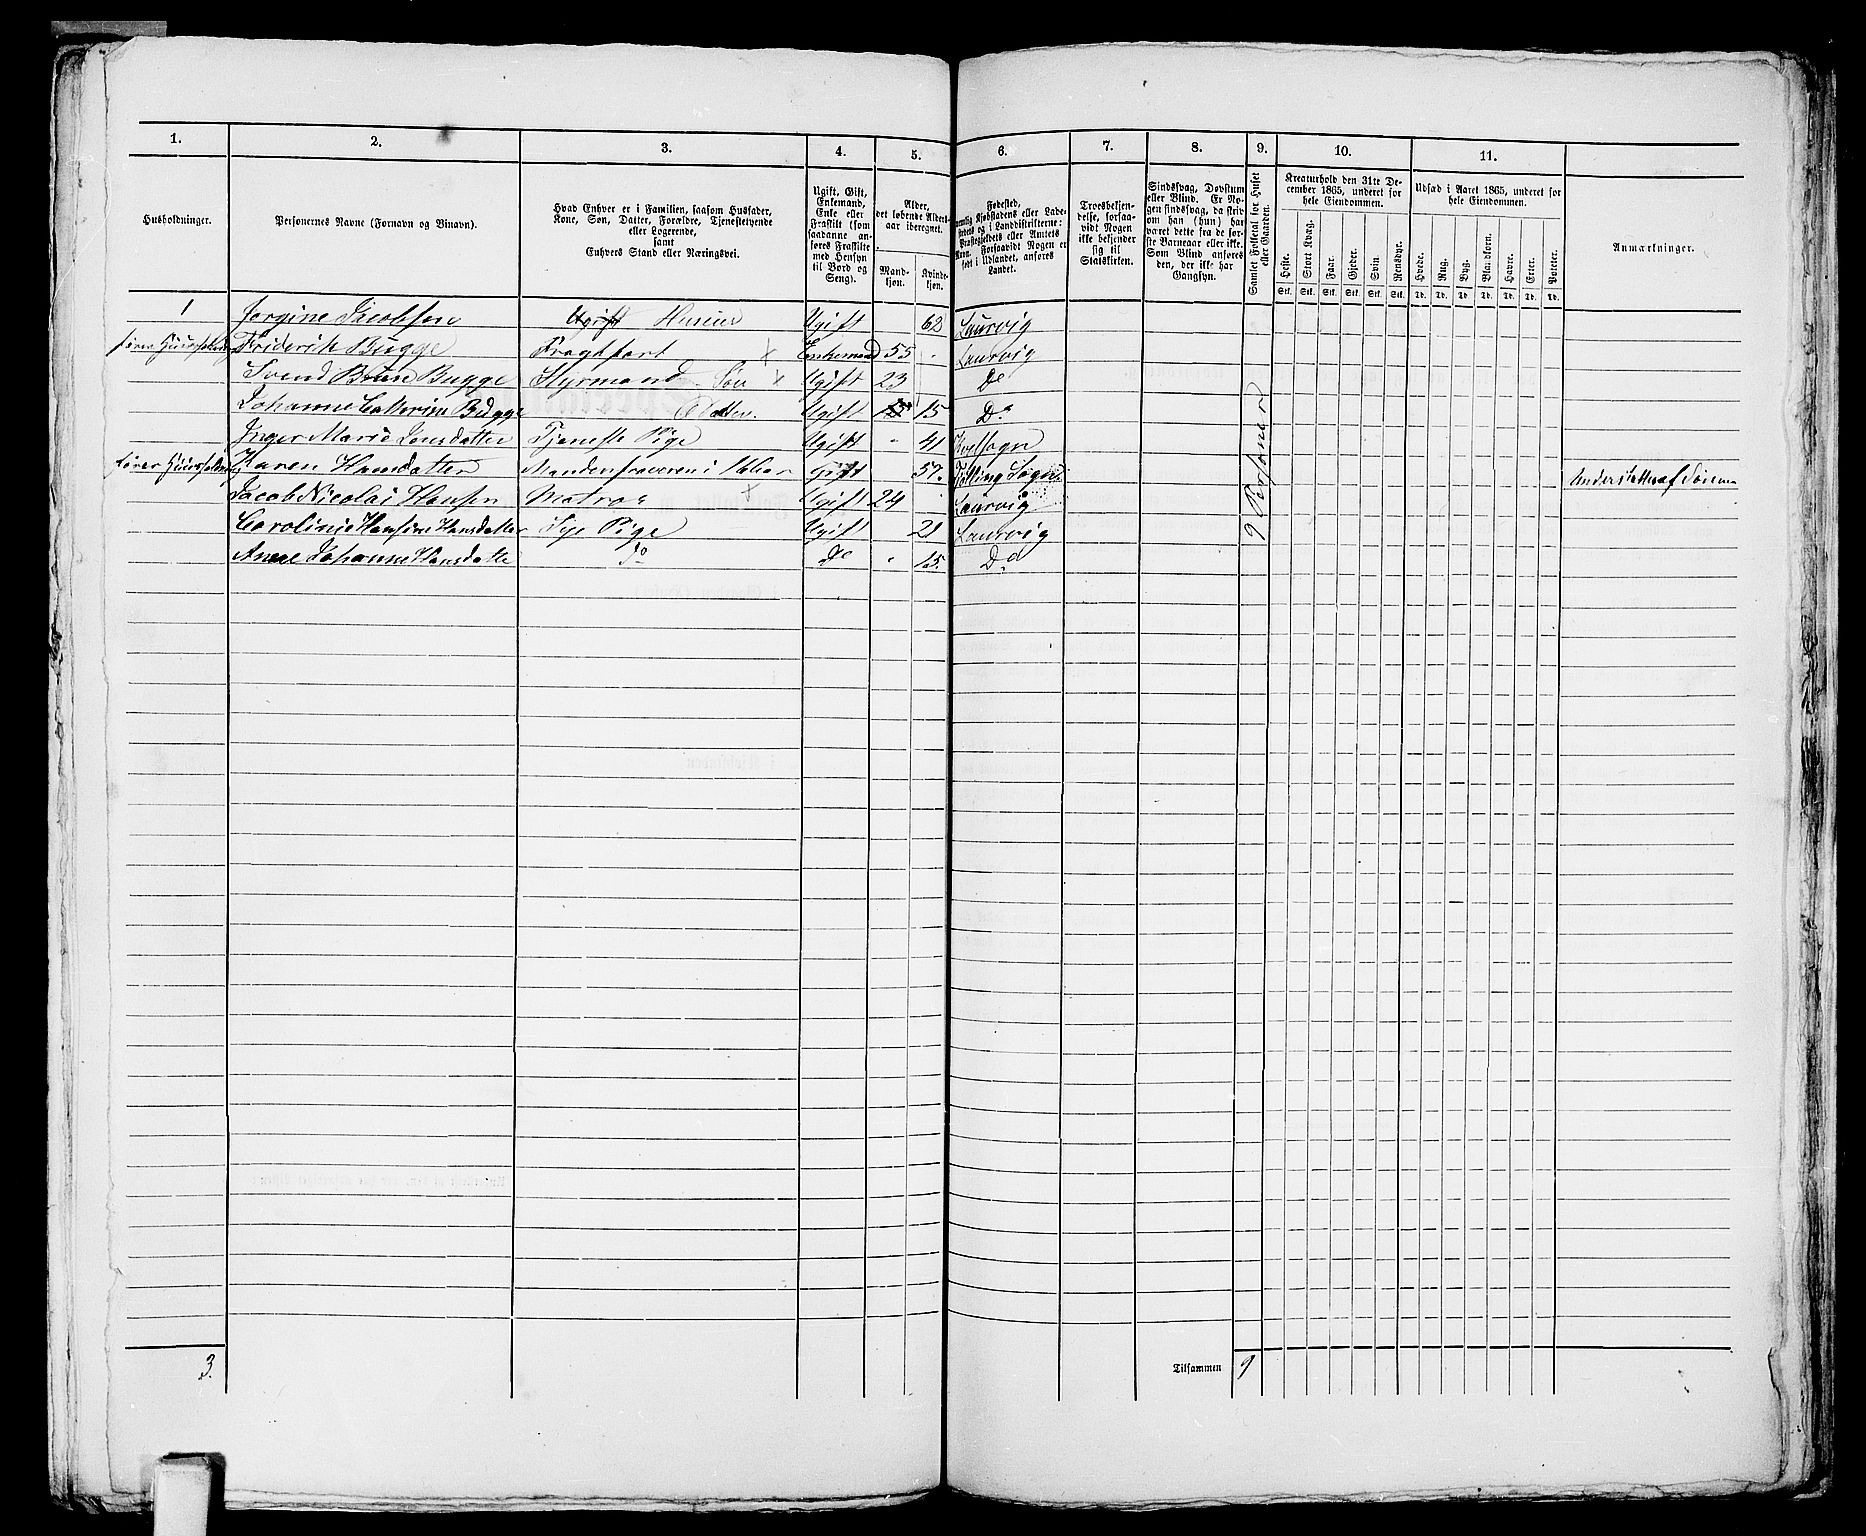 1. 2. 3. 4. 5. 6. 7. 8. 9. 10. 11.
Husholdninger.
Personernes Navne (Fornavn og Binavn).
Hvad Enhver er i Familien, saasom Husfader,
Kone, Søn, Datter, Forældre, Tjenestetyende
eller Logerende,
samt
Enhvers Stand eller Næringsvei.
Ugift, Gift,
Enkemand,
Enke eller
Fraskilt (som
saadanne an-
føres Fraskilte
med Hensyn
til Bord og
Seng).
Alder,
det løbende Alders-
aar iberegnet.
Mand-
kjøn.
Kvinde-
kjøn.
Fødested,
nemlig Kjøbstadens eller Lade-
stedets og i Landdistrikterne:
Præstegjeldets eller Amtets
Navn. Forsaavidt Nogen er
født i Udlandet, anføres
Landet.
Troesbekjen-
delse, forsaa-
vidt Nogen
ikke bekjender
sig til
Statskirken.
Sindssvag, Døvstum
eller Blind. Er No-
gen sindssvag, da skriv
om han (hun) har
været dette fra de før-
ste Barneaar eller ikke.
Som Blind anføres
den, der ikke har
Gangsyn.
Samlet Folketal for Huset
eller Gaarden.
Kreaturhold den 31te De-
cember 1865, underet for
hele Eiendommen.
Heste. Stort Kvæg. Faar. Gjeder. Svin. Rensdyr.
Stk. Stk. Stk. Stk. Stk. Stk.
Udsæd i Aaret 1865, underet for
hele Eiendommen.
Hvede. Rug. Byg. Blandkorn. Havre. Erter. Poteter.
Td. Td. Td. Td. Td. Td. Td.
Anmærkninger.
1 Jorgine Jacobsen Ugift Huseier Ugift 62 Laurvig
fører Huusholdn Friderik Bugge Fragtfart x Enkemand 55 Laurvig
Svend Brun Bugge Styrmand Søn x Ugift 23 Do
Johanne Cathrine Bugge Datter. Ugift 15 Do
Inger Marie Jensdatter Tjeneste Pige Ugift 41
fører Huusholdn Karen Hansdatter Gift 57. Tjølling Sogn
Jacob Nicolai Hansen Matros x Ugift 24 Laurvig
Carolinie Hansine Hansdatter Sye Pige Ugift 21 Laurvig
Anne Johanne Hansdatte do Do 15. Do
9 Personer
3. Tilsammen 9